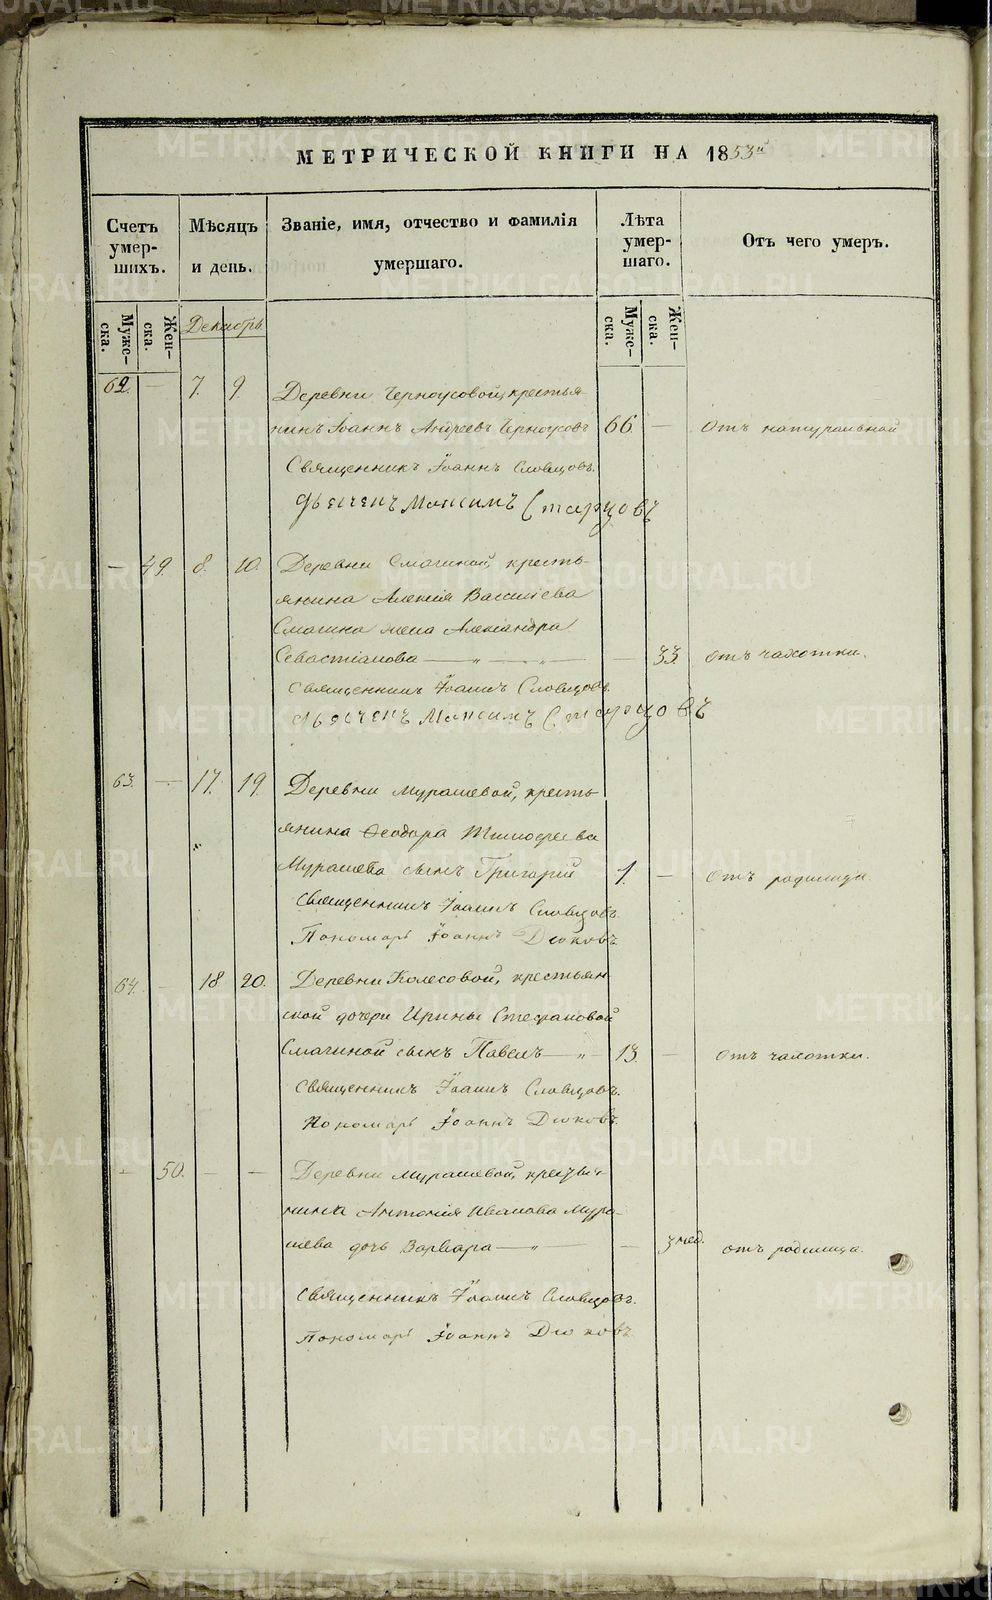 МЕТРИЧЕСКОЙ КНИГИ НА 1853й
Счетъ умер- шихъ.
Мѣсяцъ и день.
Званіе, имя, отчество и фамилія умершаго.
Лѣта умер- шаго.
Отъ чего умеръ.
Муже- ска.
Жен- ска.
Декабрь
Муже- ска.
Жен- ска.
62. — 7. 9. Деревни Черноусовой, крестья-
нинъ Іоаннъ Андреевъ Черноусовъ 66 — Отъ натуральной
Священникъ Іоаннъ Словцовъ.
Дьячекъ Максимъ Старцовъ
— 49. 8. 10. Деревни Смагиной, кресть-
янина Алексія Василіева
Смагина жена Александра
Севастіанова — „ — „ — — 33. отъ чахотки.
Священникъ Іоаннъ Словцовъ.
Дьячекъ Максимъ Старцовъ
63. — 17. 19. Деревни Мурашевой, кресть-
янина Феодора Тимофеева
Мурашева сынъ Григорій 1. — Отъ родимца.
Священникъ Іоаннъ Словцовъ.
Пономарь Іоаннъ Дюковъ
64. — 18 20. Деревни Колесовой, крестьян-
ской дочери Ирины Стефановой
Смагиной сынъ Павелъ — „ — 13. — Отъ чахотки.
Священникъ Іоаннъ Словцовъ.
Пономарь Іоаннъ Дюковъ.
— 50. — — Деревни Мурашевой, крестья-
нина Антонія Иванова Мура-
шева дочь Варвара — „ — — 3 нед. отъ родимца.
Священникъ Іоаннъ Словцовъ.
Пономарь Іоаннъ Дюковъ.
METRIKI.GASO-URAL.RU